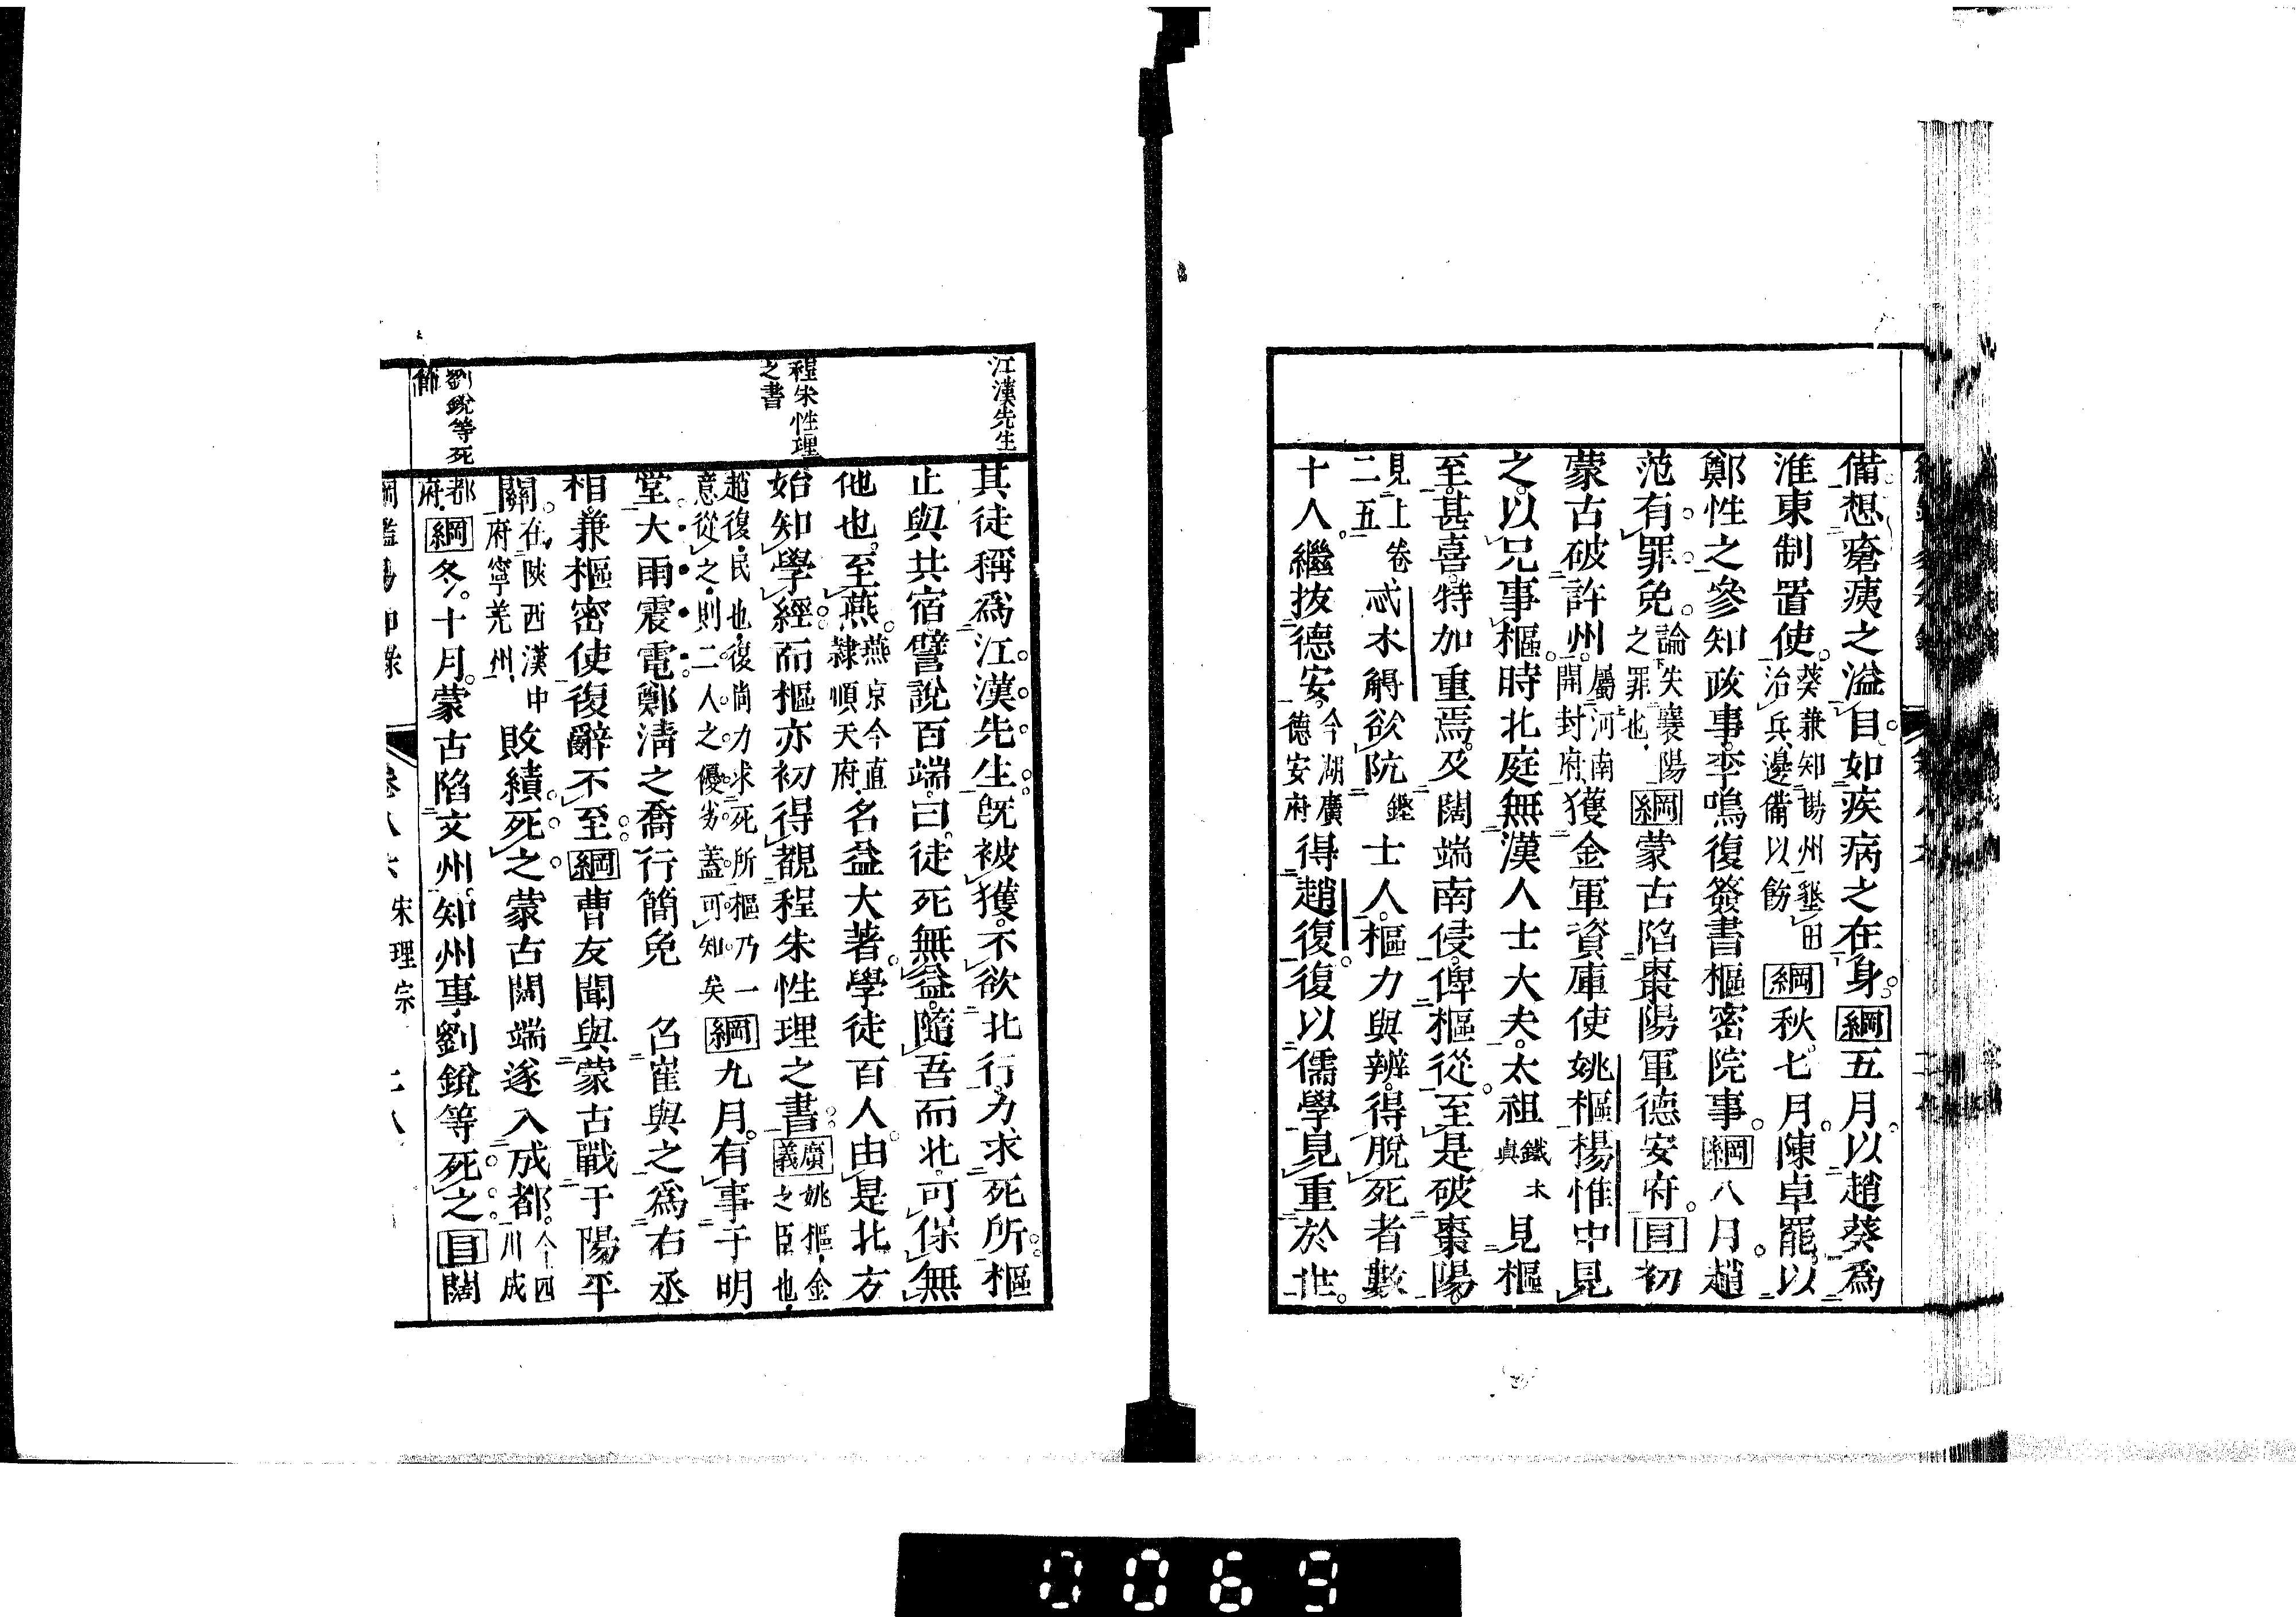 備想瘡痍之溢目如疾病之在身綱五月以趙葵爲
淮東制置使葵兼知揚州墾田治兵邊備以飭綱秋七月陳卓罷以
鄭性之參知政事李鳴復簽書樞密院事綱八月趙
范有罪免論失襄陽之罪也綱蒙古陷棗陽軍德安府目初
蒙古破許州屬河南開封府獲金軍資庫使姚樞楊惟中見
之以兄事樞時北庭無漢人士大夫太祖鐵木眞見樞
至甚喜特加重焉及闊端南侵俾樞從至是破棗陽
見上卷二五忒木䚟欲阬鏗士人樞力與辨得脫死者數
十人繼拔德安今湖廣德安府得趙復復以儒學見重於世
江漢先生
其徒稱爲江漢先生旣被獲不欲北行力求死所樞
止與共宿譬說百端曰徒死無益隨吾而北可保無
他也至燕燕京今直隸順天府名益大著學徒百人由是北方
程朱性理之書
始知學經而樞亦初得覩程朱性理之書廣義姚樞金之臣也
趙復民也復尚力求死所樞乃一意從之則二人之優劣蓋可知矣綱九月有事于明
堂大雨震電鄭清之喬行簡免 召崔與之爲右丞
相兼樞密使復辭不至綱曹友聞與蒙古戰于陽平
關在陝西漢中府寧羌州敗績死之蒙古闊端遂入成都今四川成
劉銳等死節
都府綱冬十月蒙古陷文州知州事劉銳等死之目闊
宋理宗